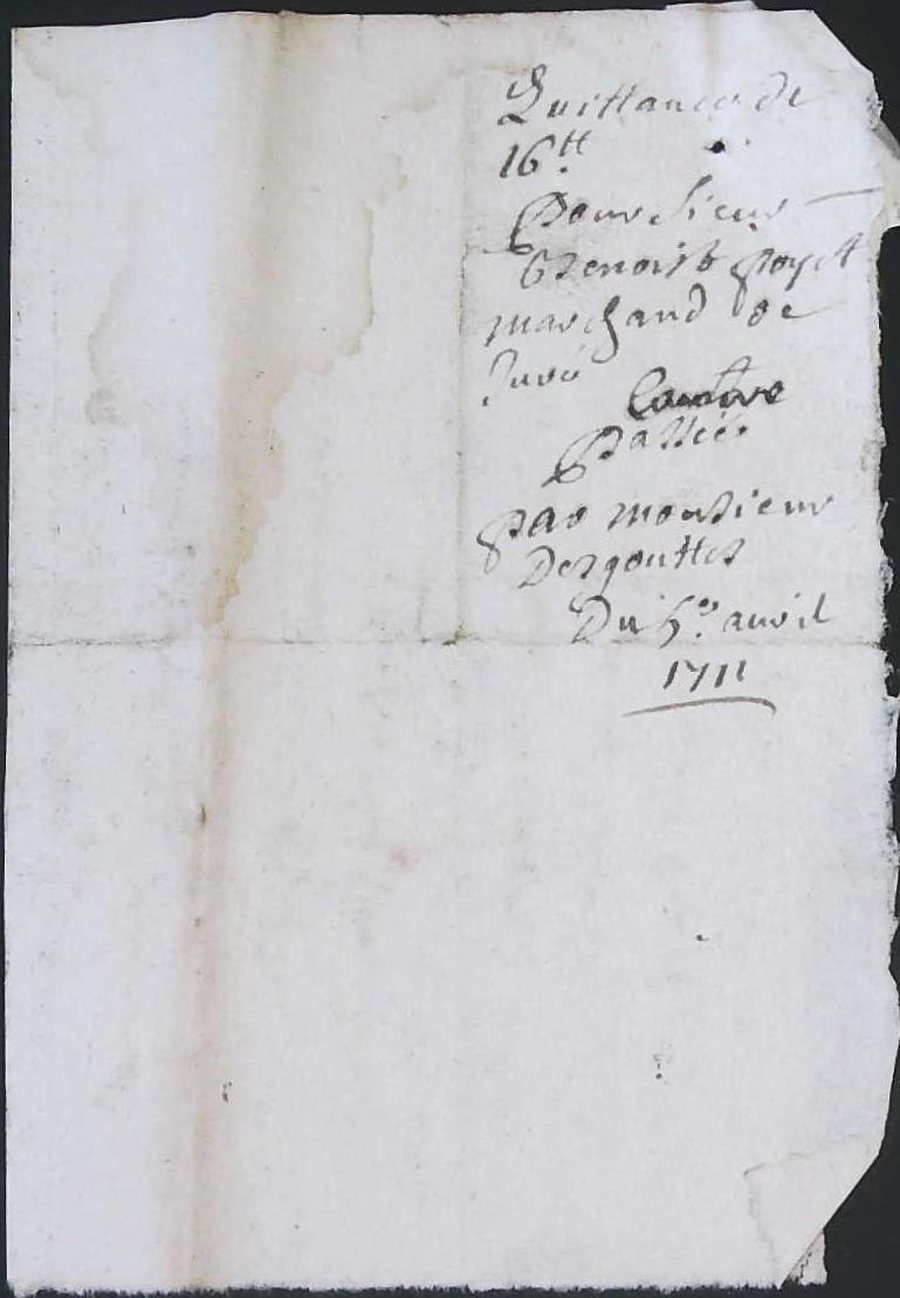 Quittance de
16tt.
Pour sieur
Benoist poyet
marchand de
Passée
par monsieur
Desgouttes
Du 5e. avril
1711